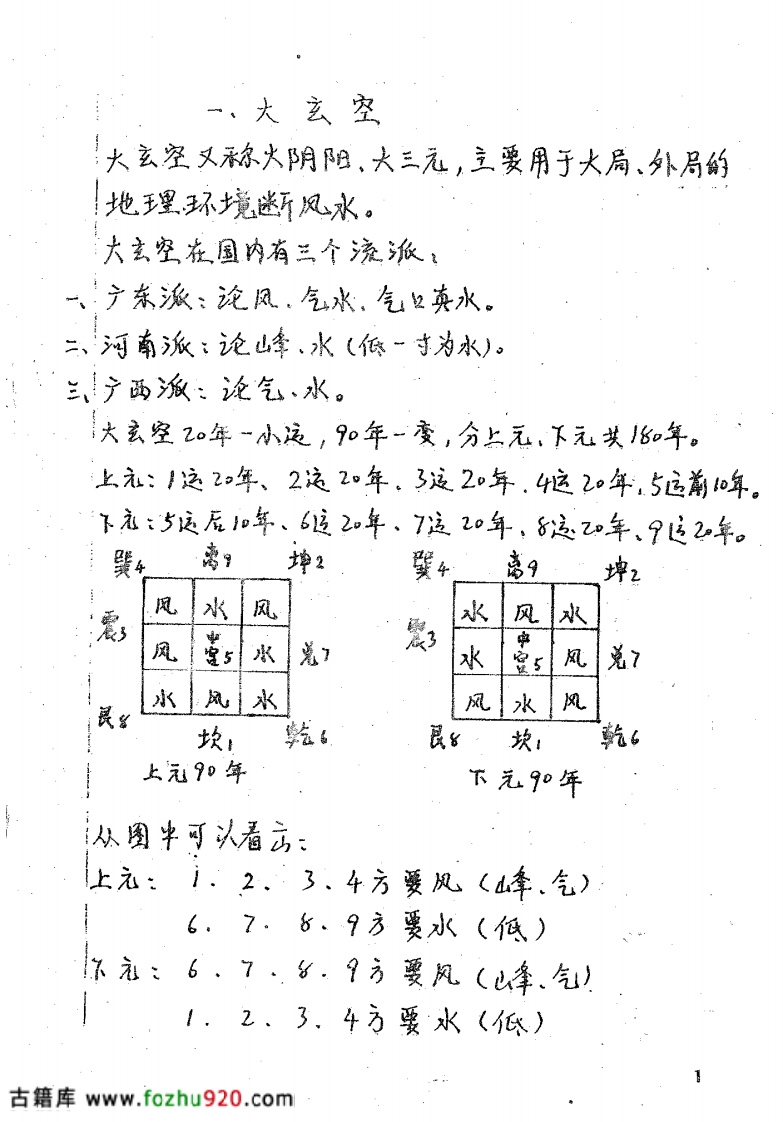 一、大玄空
大玄空又称大阴阳、大三元，主要用于大局、外局的
地理环境断风水。
大玄空在国内有三个流派：
一、广东派：论风、气水、气口真水。
二、河南派：论山峰、水（低一寸为水）。
三、广西派：论气、水。
大玄空20年一小运，90年一变，分上元、下元共180年。
上元：1运20年、2运20年、3运20年、4运20年、5运前10年。
下元：5运后10年、6运20年、7运20年、8运20年、9运20年。
巽4 离9 坤2
风 水 风
震3 风 中宫5 水 兑7
水 风 水
艮8 坎1 乾6
上元90年
巽4 离9 坤2
水 风 水
震3 水 中宫5 风 兑7
风 水 风
艮8 坎1 乾6
下元90年
从图中可以看出：
上元：1．2．3．4方要风（山峰、气）
6．7．8．9方要水（低）
下元：6．7．8．9方要风（山峰、气）
1．2．3．4方要水（低）
1
古籍库 www.fozhu920.com